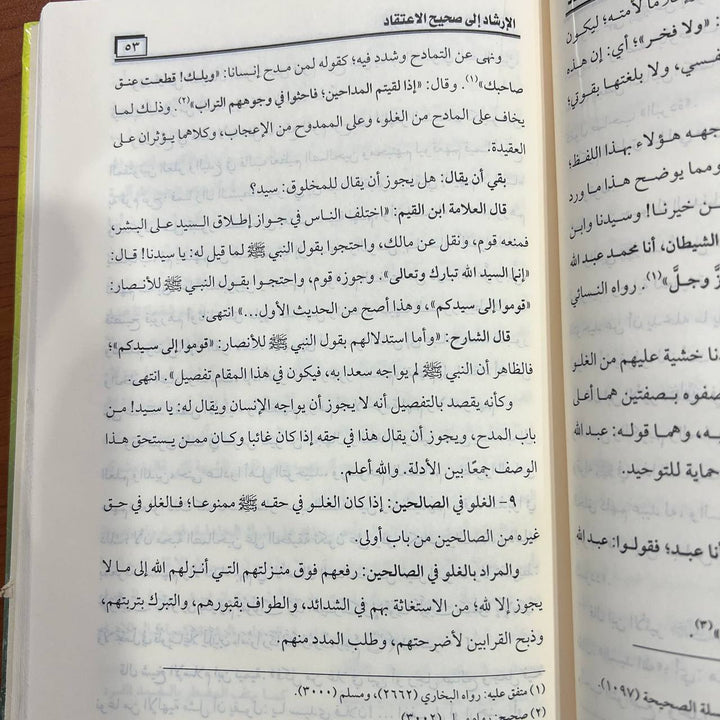 الإرشاد إلى صحيح الاعتقاد
٥٣
ونهى عن التمادح وشدد فيه؛ كقوله لمن مدح إنسانا: «ويلك! قطعت عنق
صاحبك»(١). وقال: «إذا لقيتم المداحين؛ فاحثوا في وجوههم التراب»(٢). وذلك لما
يخاف على المادح من الغلو، وعلى الممدوح من الإعجاب، وكلاهما يؤثران على
العقيدة.
بقي أن يقال: هل يجوز أن يقال للمخلوق: سيد؟
قال العلامة ابن القيم: «اختلف الناس في جواز إطلاق السيد على البشر،
فمنعه قوم، ونقل عن مالك، واحتجوا بقول النبي ﷺ لما قيل له: يا سيدنا! قال:
«إنما السيد الله تبارك وتعالى». وجوزه قوم، واحتجوا بقول النبي ﷺ للأنصار:
«قوموا إلى سيدكم»، وهذا أصح من الحديث الأول...» انتهى.
قال الشارح: «وأما استدلالهم بقول النبي ﷺ للأنصار: «قوموا إلى سيدكم»؛
فالظاهر أن النبي ﷺ لم يواجه سعدا به، فيكون في هذا المقام تفصيل». انتهى.
وكأنه يقصد بالتفصيل أنه لا يجوز أن يواجه الإنسان ويقال له: يا سيد! من
باب المدح، ويجوز أن يقال هذا في حقه إذا كان غائبا وكان ممن يستحق هذا
الوصف جمعًا بين الأدلة. والله أعلم.
٩- الغلو في الصالحين: إذا كان الغلو في حقه ﷺ ممنوعا؛ فالغلو في حق
غيره من الصالحين من باب أولى.
والمراد بالغلو في الصالحين: رفعهم فوق منزلتهم التي أنزلهم الله إلى ما لا
يجوز إلا لله؛ من الاستغاثة بهم في الشدائد، والطواف بقبورهم، والتبرك بتربتهم،
وذبح القرابين لأضرحتهم، وطلب المدد منهم.
(١) متفق عليه: رواه البخاري (٢٦٦٢)، ومسلم (٣٠٠٠).
(٢) صحيح: رواه (٣٠٠٢)
لأمته؛ ليكون
: «ولا فخر»؛ أي: إن هذه
نفسي، ولا بلغتها بقوتي؛
جهه هؤلاء بهذا اللفظ؛
ومما يوضح هذا ما ورد
ن خيرنا! وسيدنا وابن
الشيطان، أنا محمد عبد الله
زَّ وجلَّ»(١). رواه النسائي
نا خشية عليهم من الغلو
صفوه بصفتين هما أعلى
به، وهما قوله: عبد الله
حماية للتوحيد.
أنا عبد؛ فقولوا: عبد الله
»(٣).
سلة الصحيحة (١٠٩٧).